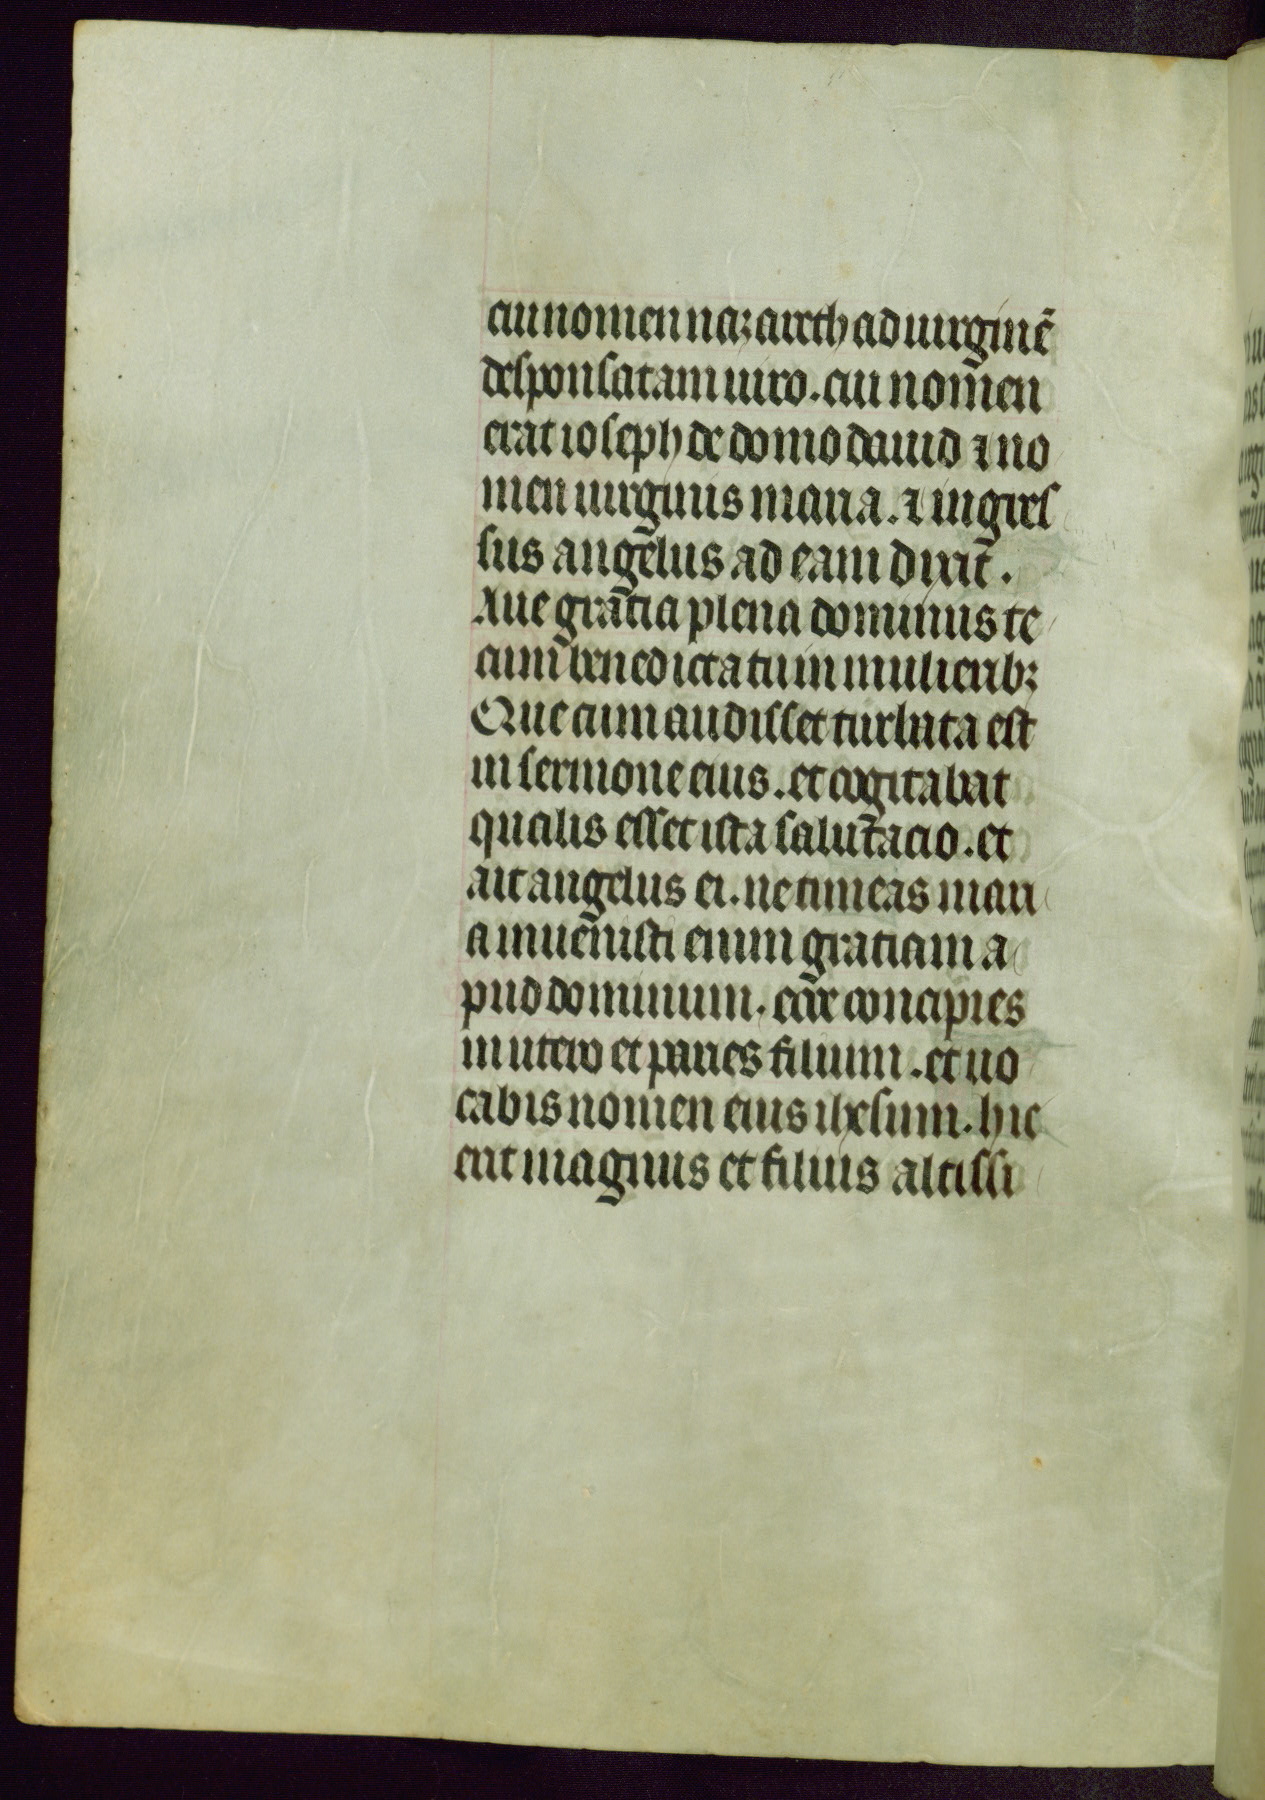 cui nomen nazareth ad uirginē
desponsatam uiro. cui nomen
erat ioseph de domo dauid ⁊ no
men uirginis maria. ⁊ ingres
sus angelus ad eam dixit.
Aue gratia plena dominus te
cum benedicta tu in mulierib;
Que cum audisset turbata est
in sermone eius. et cogitabat
qualis esset ista salutacio. et
ait angelus ei. ne timeas mari
a inuenisti enim gratiam a
pud dominum. ecce concipies
in utero et paries filium. et uo
cabis nomen eius ihesum. hic
erit magnus et filius altissi